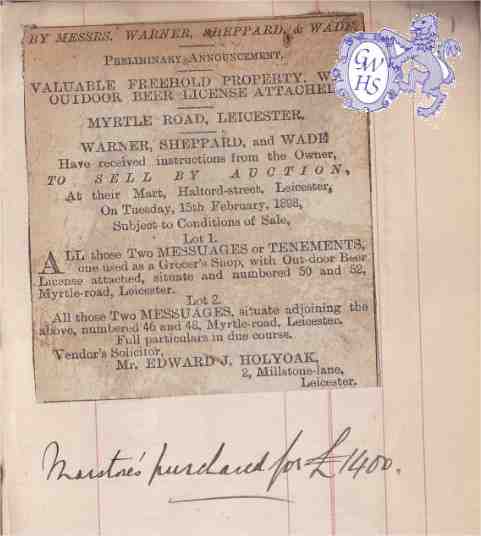 BY MESSRS. WARNER, SHEPPARD, & WADE.
PRELIMINARY ANNOUNCEMENT.
VALUABLE FREEHOLD PROPERTY, W
OUTDOOR BEER LICENSE ATTACHED
MYRTLE ROAD, LEICESTER.
WARNER, SHEPPARD, and WADE
Have received instructions from the Owner,
TO SELL BY AUCTION,
At their Mart, Halford-street, Leicester,
On Tuesday, 15th February, 1898,
Subject to Conditions of Sale,
Lot 1.
ALL those Two MESSUAGES or TENEMENTS,
one used as a Grocer's Shop, with Out-door Beer
License attached, situate and numbered 50 and 52,
Myrtle-road, Leicester.
Lot 2.
All those Two MESSUAGES, situate adjoining the
above, numbered 46 and 48, Myrtle-road, Leicester.
Full particulars in due course.
Vendor's Solicitor,
Mr. EDWARD J. HOLYOAK,
2, Millstone-lane,
Leicester.
Marston's purchased for £1400.
GW
HS